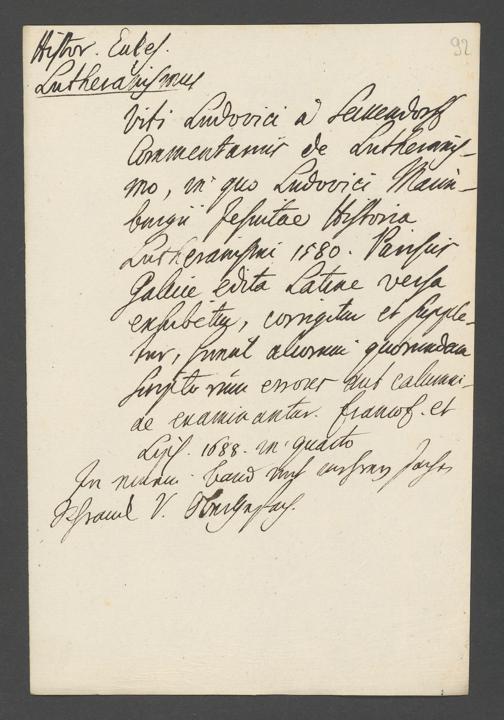 92
Histor. Eccles.
Lutheranismus
Viti Ludovici a Seckendorff
Commentarius de Lutheranis-
mo, in quo Ludovici Maim-
burgii Jesuitae Historia
Lutheranismi 1580. Parisiis
Gallice edita Latine versa
exhibetur, corrigitur et supple-
tur, simul aliorum quorundam
Scriptorum errores aut calumni-
ae examinantur. Francof. et
Lips. 1688. in quarto
In neuem band
V.